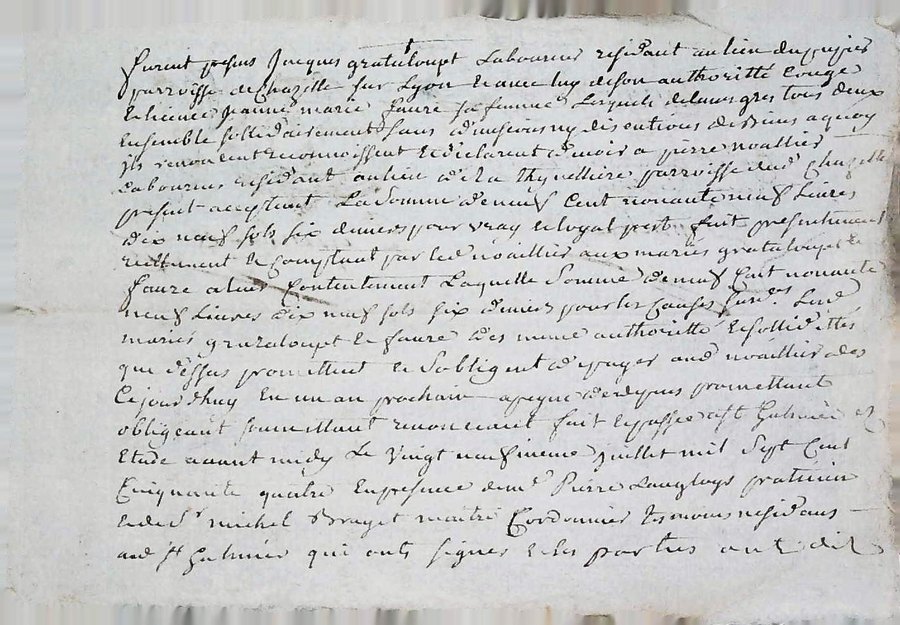 furent presens Jacques grataloupt Laboureur residant au lieu du pujet
parroisse de Chazelle sur Lyon et avec luy de son authoritté Conge
et licence Jeanne marie faure sa femme Lesquels de leurs gres tous deux
Ensemble sollidairement sans division ny discutions de Biens a quoy
ils renoncent reconnoissent et declarent devoir a pierre noallier
Laboureur residant au lieu de la thynelliere parroisse dud Chazelle
present acceptant La Somme de neuf Cent nonante neuf Livres
dix neuf sols six deniers pour vray et loyal prest fait presentement
reellement et Comptant par led noaillier aux mariés grataloupt et
faure a leur Contentement Laquelle Somme de neuf Cent nonante
neuf Livres dix neuf sols six deniers pour les Causes susd. Lesd
mariés grataloupt et faure des meme authoritté et sollidittés
que dessus promettent et S'obligent de payer aud noaillier des
Ce jourdhuy En un an prochain a peyne de depens promettant
obligeant soumettant renoncant fait et passé a St Galmier
Etude avant midy Le Vingt neufvieme juillet mil Sept Cent
Cinquante quatre En presence de mr Pierre Langloys praticien
et de Sr michel Bruyet maitre Cordonnier temoins residans
aud St Galmier qui onts signes et les parties ont dit